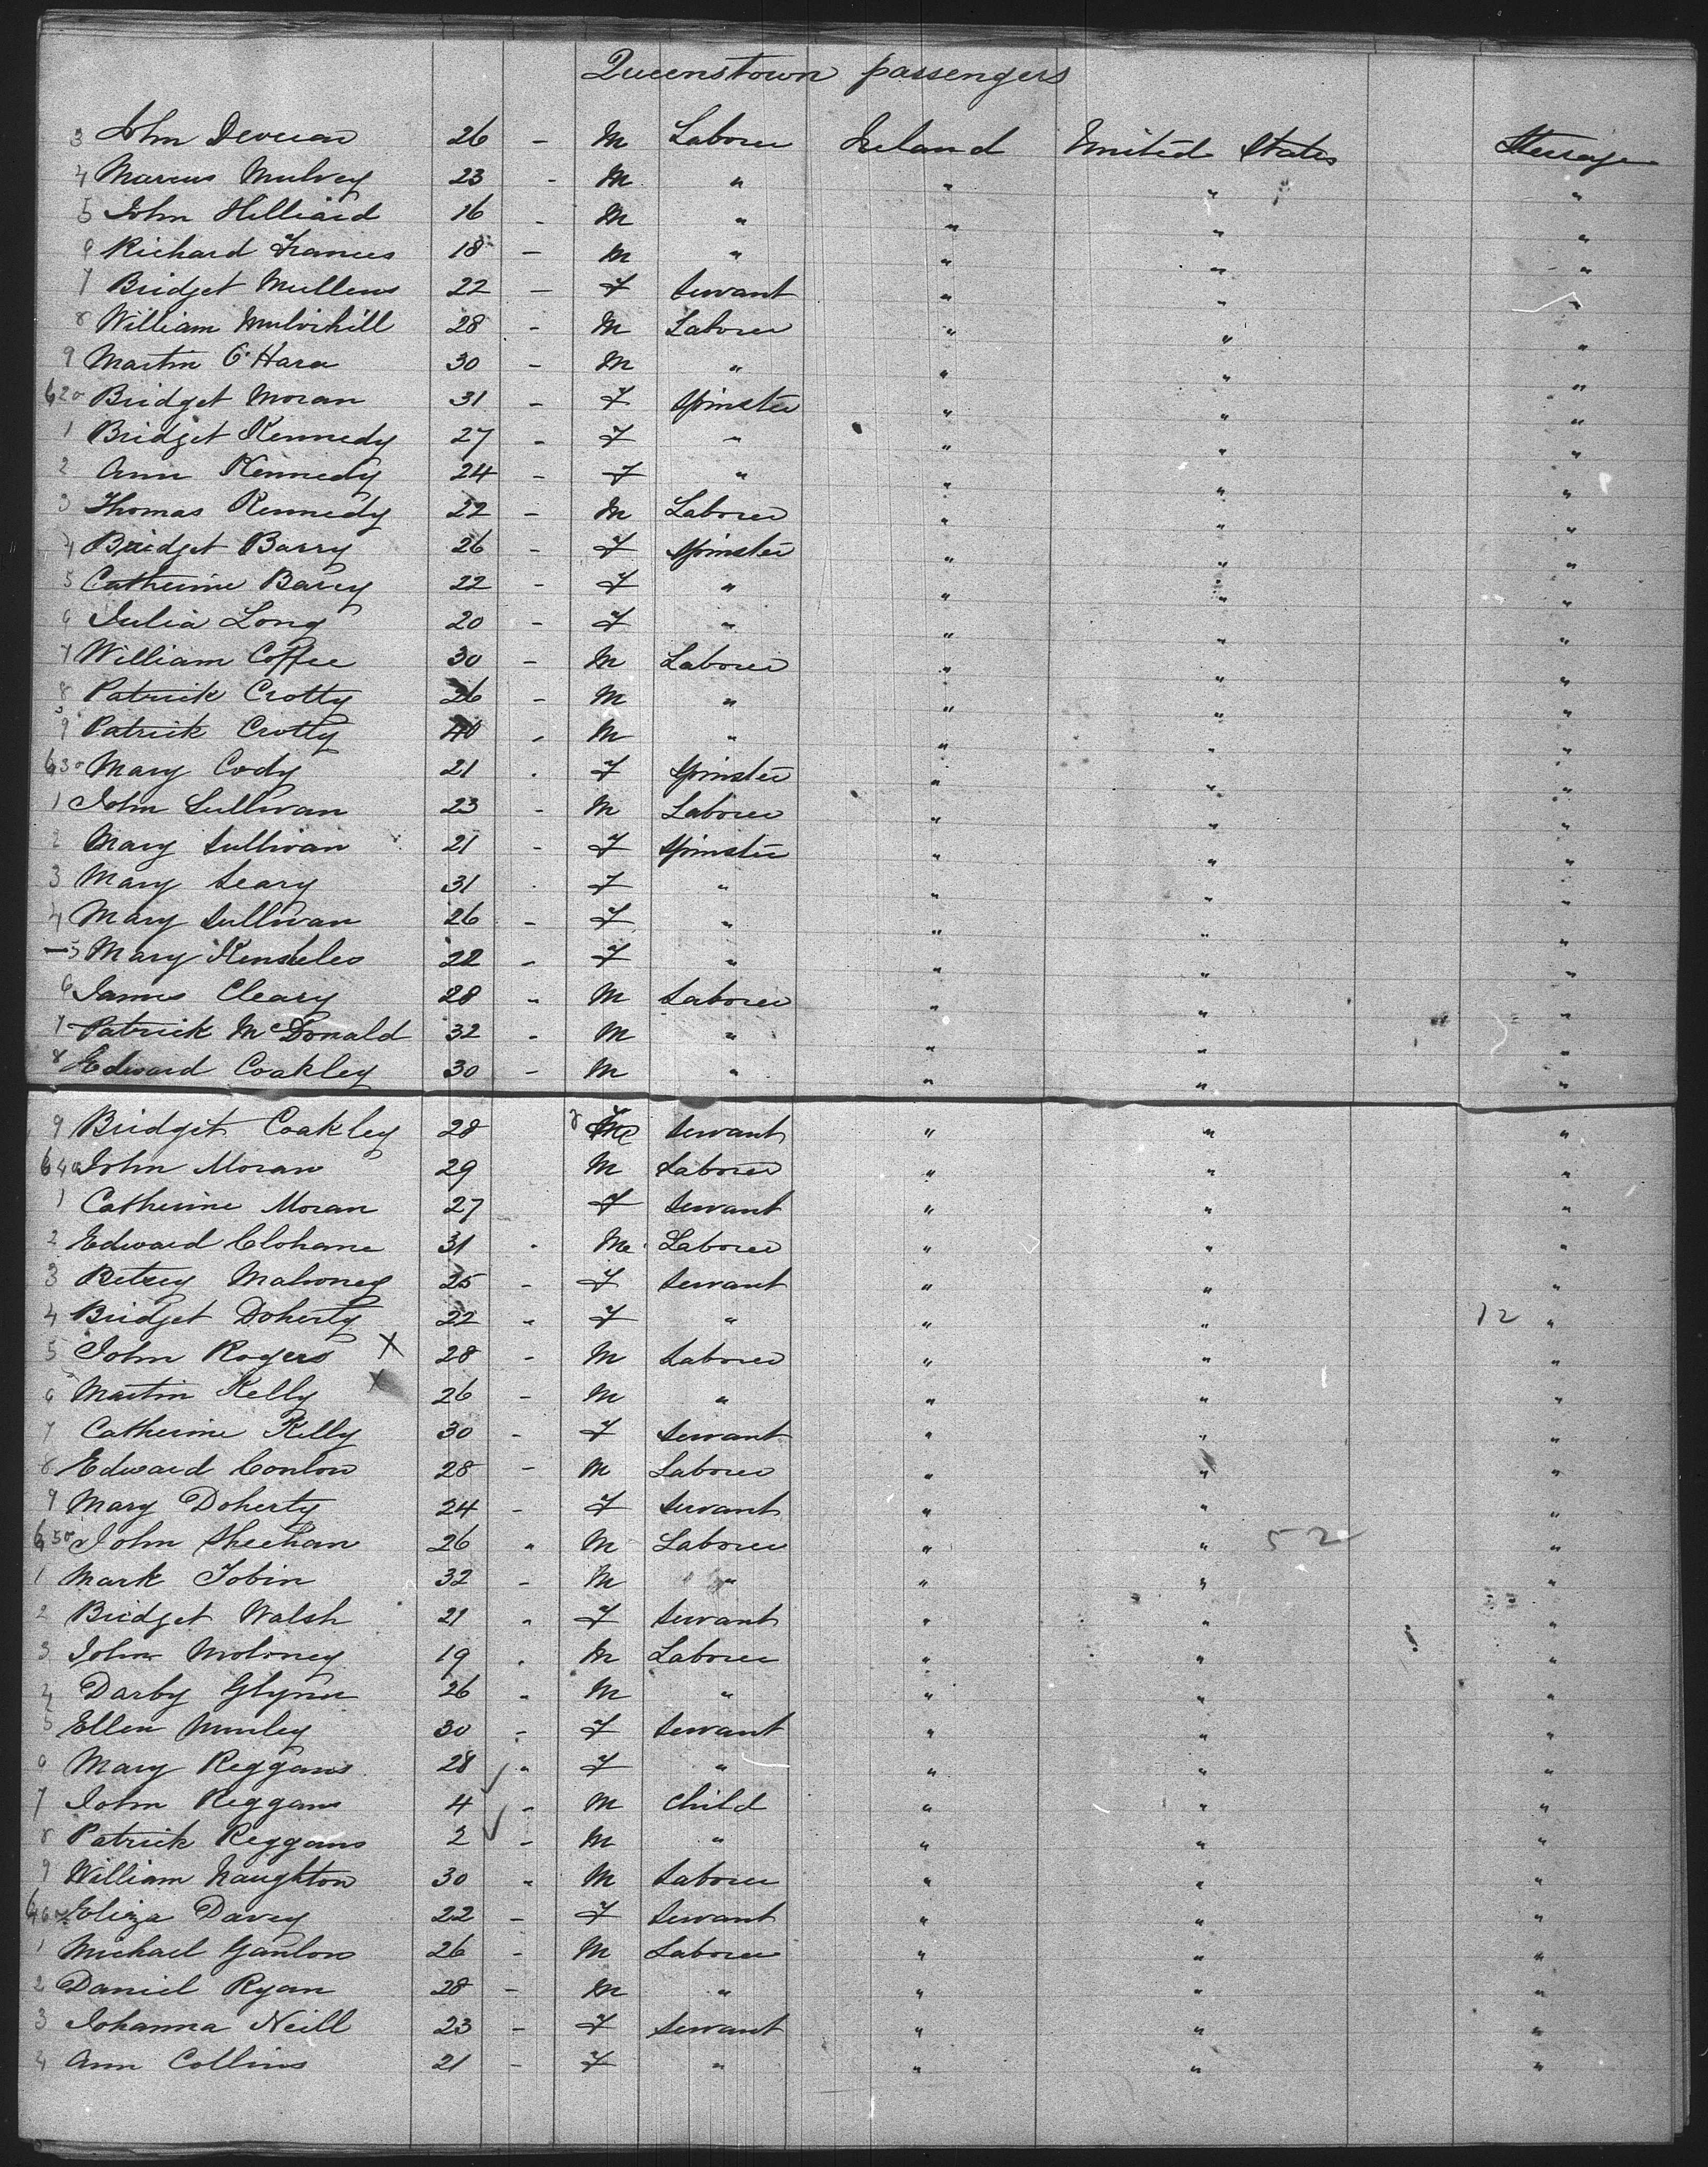 Queenstown passengers
3 John 26 - M Laborer Ireland United States Steerage
4 Marcus Mulvey 23 - M " " " "
5 John Hilliard 16 - M " " " "
6 Richard Francis 18 - M " " " "
7 Bridget Mullens 22 - F Servant " " "
8 William Mulvihill 28 - M Laborer " " "
9 Martin O'Hara 30 - M " " " "
620 Bridget Moran 31 - F Spinster " " "
1 Bridget Kennedy 27 - F " " " "
2 Ann Kennedy 24 - F " " " "
3 Thomas Kennedy 22 - M Laborer " " "
4 Bridget Barry 26 - F Spinster " " "
5 Catherine Barry 22 - F " " " "
6 Julia Long 20 - F " " " "
7 William Coffee 30 - M Laborer " " "
8 Patrick Crotty 26 - M " " " "
9 Patrick Crotty 40 - M " " " "
630 Mary Cody 21 - F Spinster " " "
1 John Sullivan 23 - M Laborer " " "
2 Mary Sullivan 21 - F Spinster " " "
3 Mary Leary 31 - F " " " "
4 Mary Sullivan 26 - F " " " "
5 Mary 22 - F " " " "
6 James Cleary 28 " M Laborer " " "
7 Patrick McDonald 32 - M " " " "
8 Edward Coakley 30 - M " " " "
9 Bridget Coakley 28 Servant " " "
640 John Moran 29 M Laborer " " "
1 Catherine Moran 27 F Servant " " "
2 Edward Clohane 31 - M Laborer " " "
3 Betsey Mahoney 25 - F Servant " " "
4 Bridget Doherty 22 " F " " " 12 "
5 John Rogers X 28 - M Laborer " " "
6 Martin Kelly X 26 - M " " " "
7 Catherine Kelly 30 - F Servant " " "
8 Edward Conlon 28 - M Laborer " " "
9 Mary Doherty 24 - F Servant " " "
650 John Sheehan 26 " M Laborer " " 52 "
1 Mark Tobin 32 - M " " " "
2 Bridget Walsh 21 " F Servant " " "
3 John Moloney 19 " M Laborer " " "
4 Darby Glynn 26 " M " " " "
5 Ellen Munley 30 - F Servant " " "
6 Mary Reggans 28 " F " " " "
7 John Reggans 4 - M Child " " "
8 Patrick Reggans 2 - M " " " "
9 William Naughton 30 " M Laborer " " "
660 Eliza Davey 22 - F Servant " " "
1 Michael Ganlon 26 - M Laborer " " "
2 Daniel Ryan 28 - M " " " "
3 Johanna Neill 23 - F Servant " " "
4 Ann Collins 21 - F " " " "